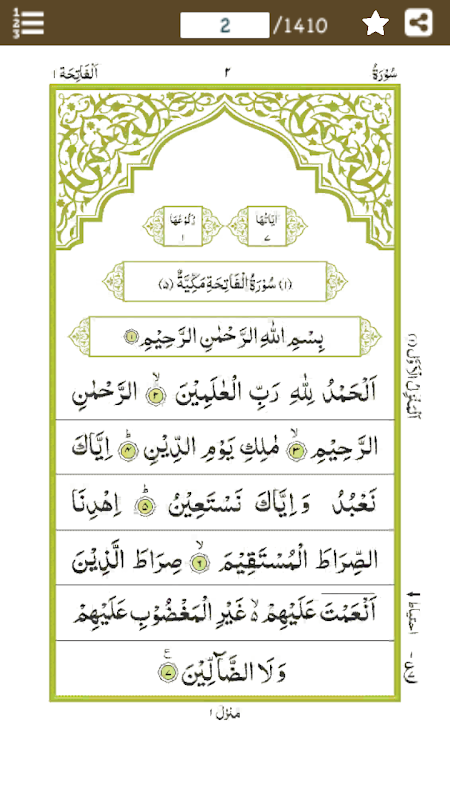 2 /1410
سُوۡرَةُ ٢ اَلۡفَاتِحَة ١
اٰيَاتُهَا ٧ رُكُوۡعُهَا ١
(١) سُوۡرَةُ الۡفَاتِحَةِ مَكِّيَّةٌ (٥)
بِسۡمِ اللّٰهِ الرَّحۡمٰنِ الرَّحِيۡمِ ١
اَلۡحَمۡدُ لِلّٰهِ رَبِّ الۡعٰلَمِيۡنَ ۙ‏ ٢ الرَّحۡمٰنِ
الرَّحِيۡمِ ۙ‏ ٣ مٰلِكِ يَوۡمِ الدِّيۡنِ ؕ‏ ٤ اِيَّاكَ
نَعۡبُدُ وَاِيَّاكَ نَسۡتَعِيۡنُ ؕ‏ ٥ اِهۡدِنَا
الصِّرَاطَ الۡمُسۡتَقِيۡمَ ۙ‏ ٦ صِرَاطَ الَّذِيۡنَ
اَنۡعَمۡتَ عَلَيۡهِمۡ ۙ۬ غَيۡرِ الۡمَغۡضُوۡبِ عَلَيۡهِمۡ
وَلَا الضَّآلِّيۡنَ ٧
اَلۡمَنۡزِلُ الۡاَوَّل (١)
احتياط
مَنۡزِل ١